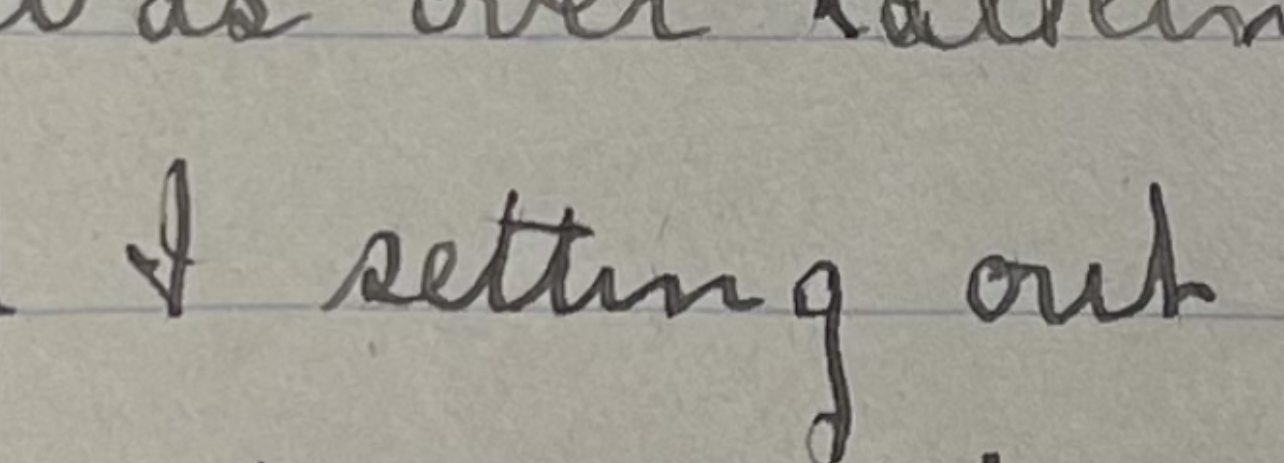 as over
I setting out